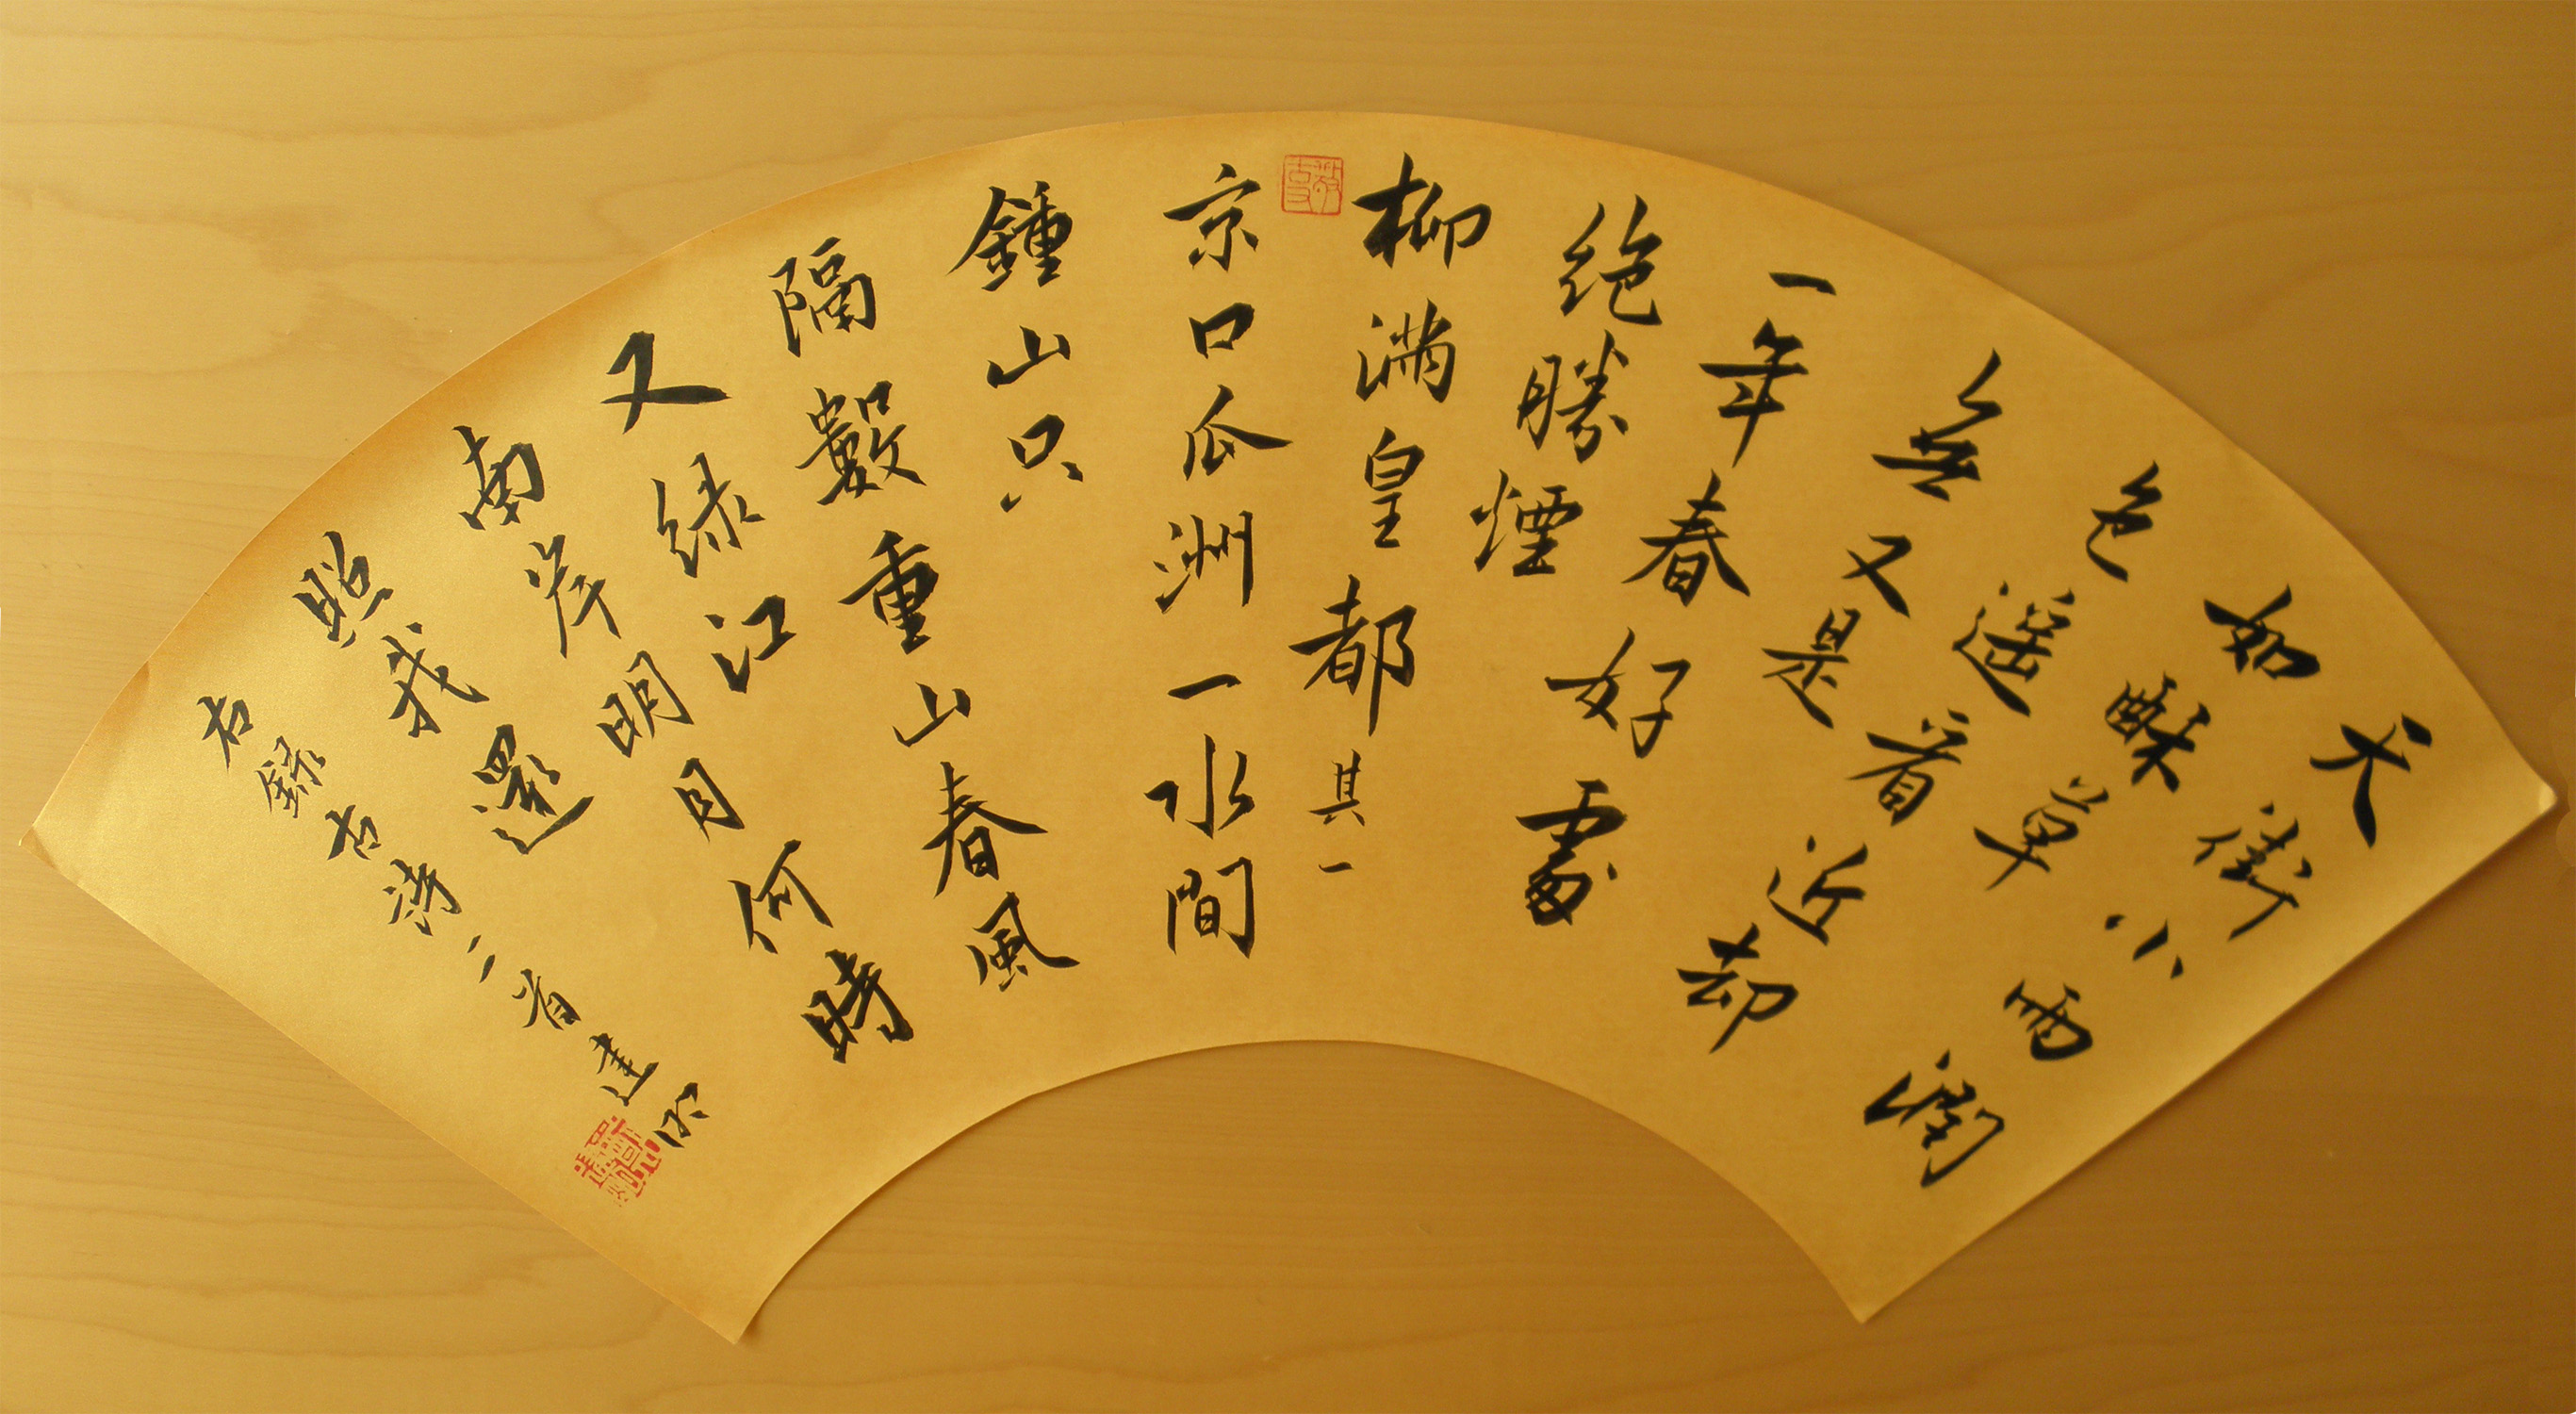 天街小雨潤
如酥草
色遥看近却
無又是
一年春好處
绝勝煙
柳滿皇都其一
京口瓜洲一水間
鍾山只
隔數重山春風
又绿江
南岸明月何時
照我還
右錄古詩二首建明